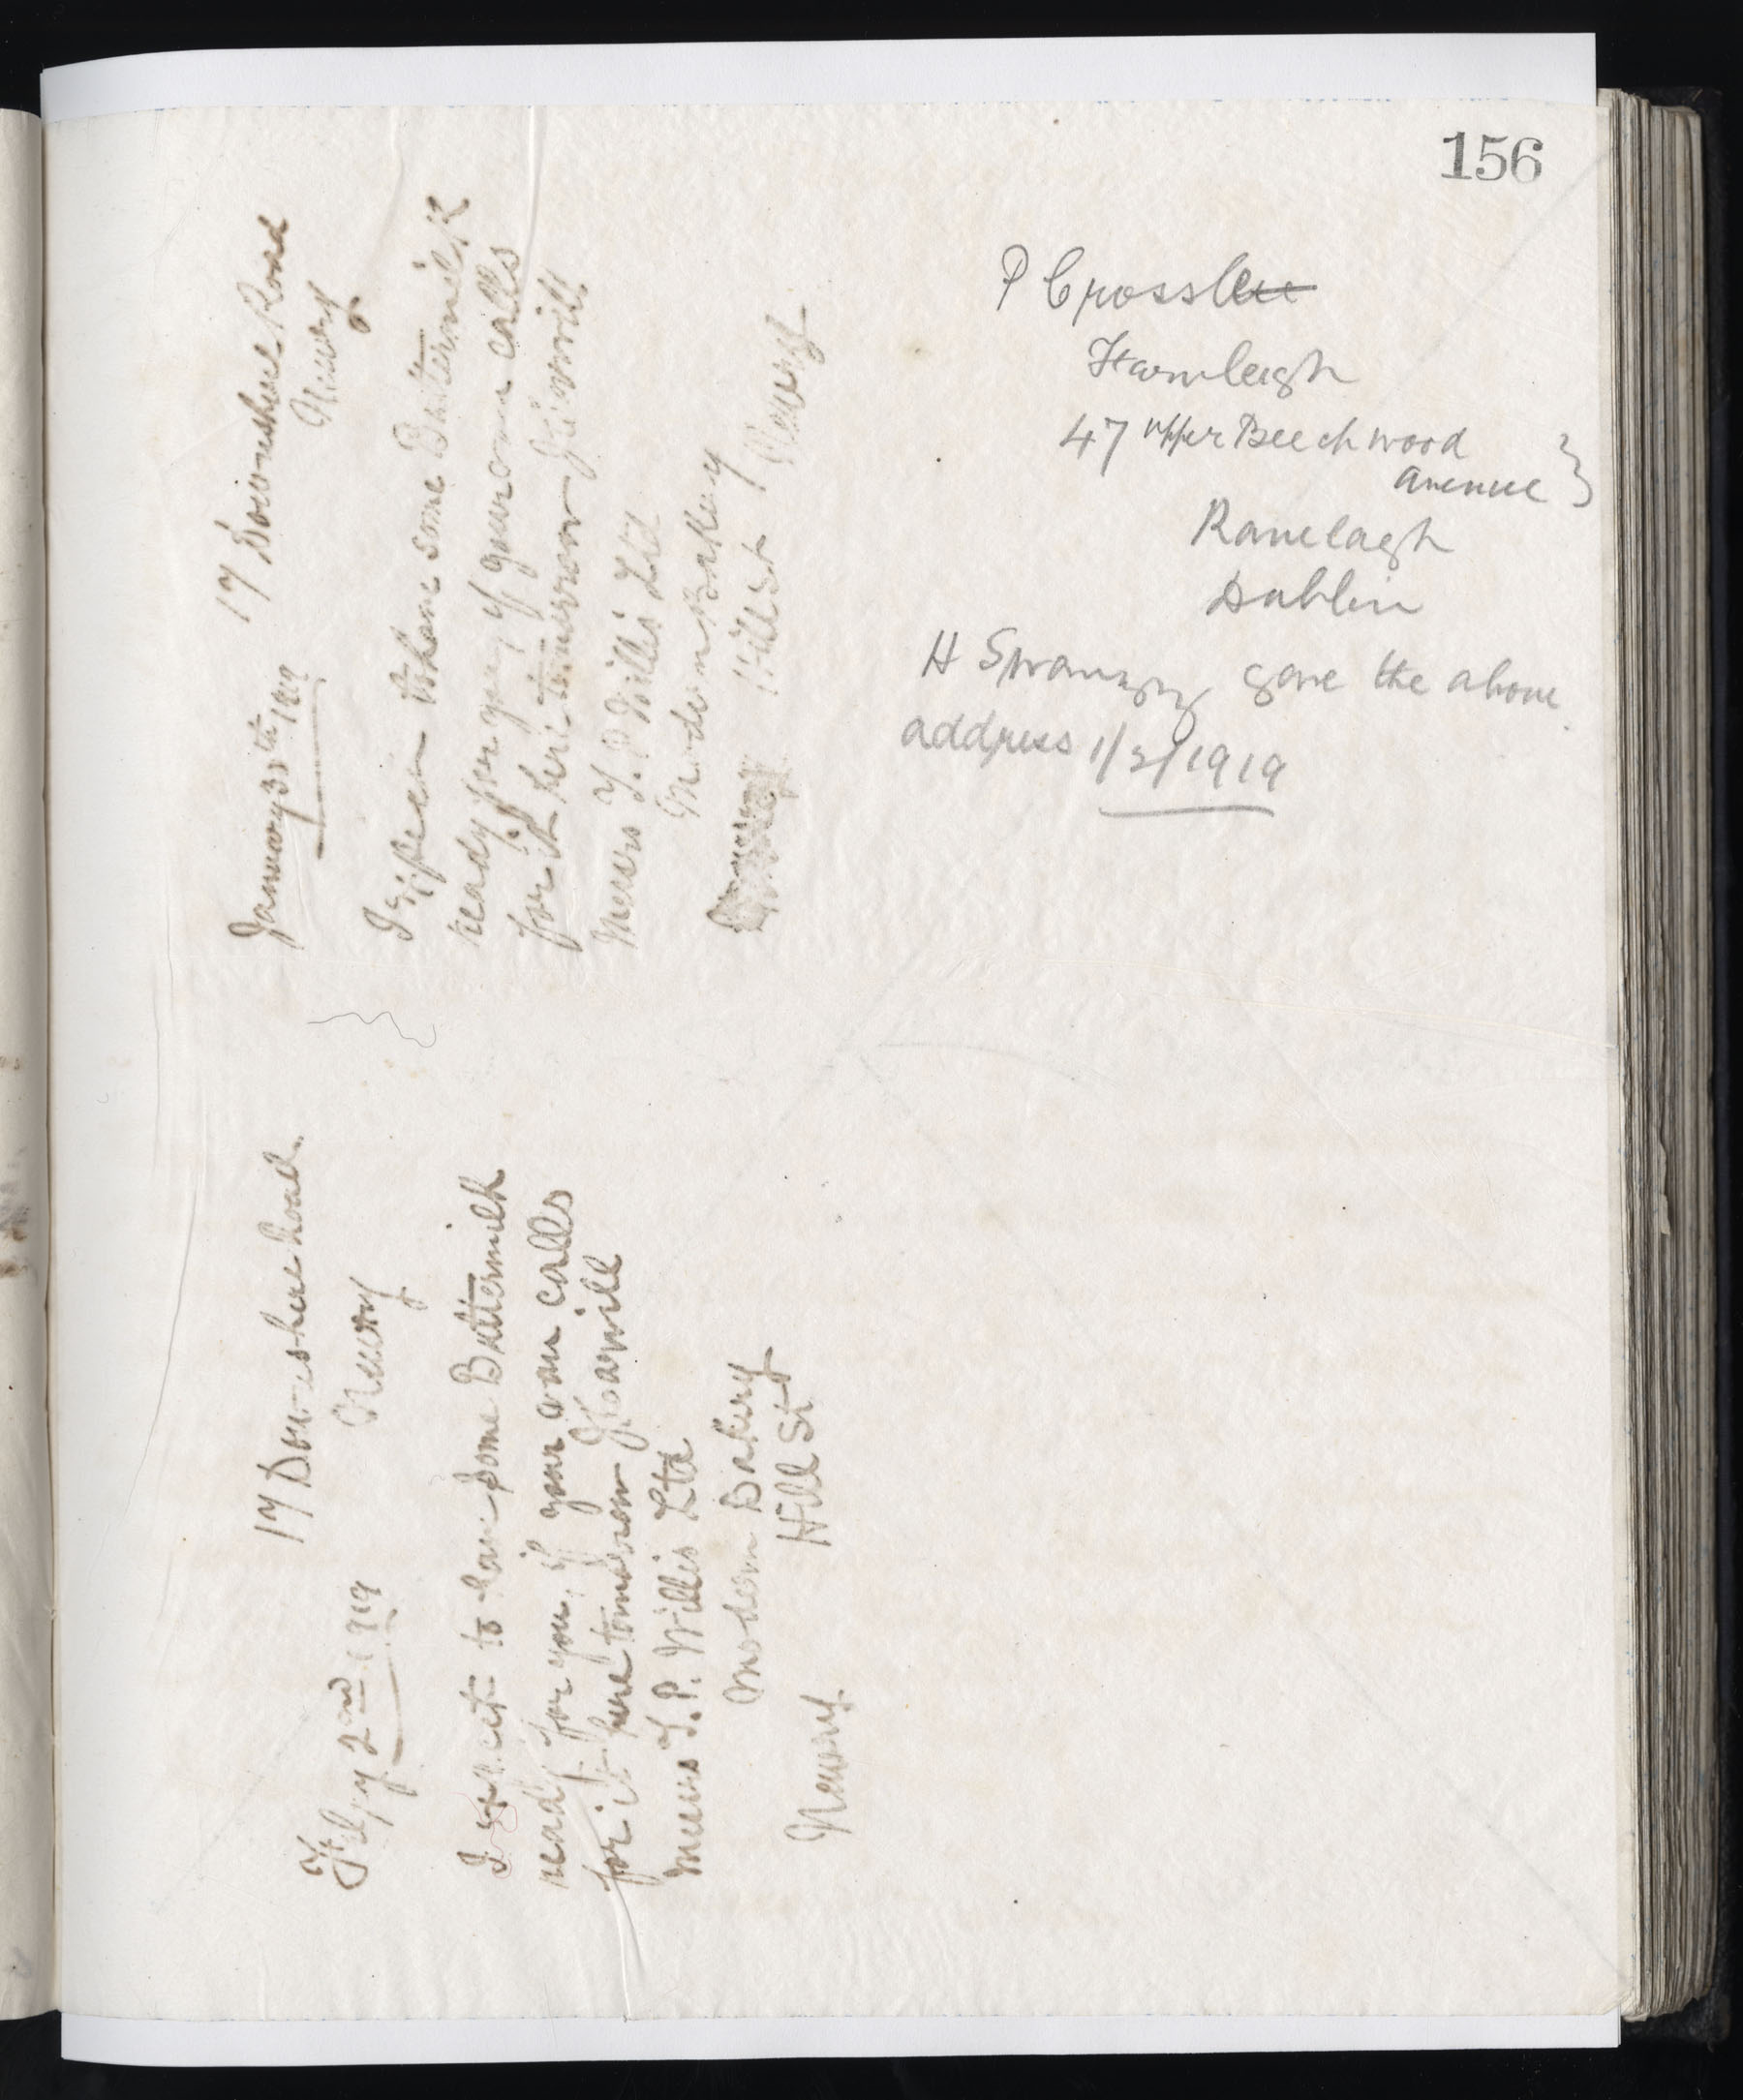 156
17 Downshire Road
Newry
January 30th 1919
I expect to have some Buttermilk
ready for you, if your own calls
for it here tomorrow Jas will
Messrs T. P. Willis Ltd
Modern Bakery
Hill St Newry
P Crosslee
Farmleigh
47 upper Beechwood
Avenue
Ranelagh
Dublin
H Swanzy gave the above
address 1/2/1919
17 Downshire Road.
Newry
Feby 2nd 1919
I expect to have some Buttermilk
ready for you, if your own calls
for it here tomorrow
Messrs T. P. Willis Ltd
Modern Bakery
Hill St
Newry.